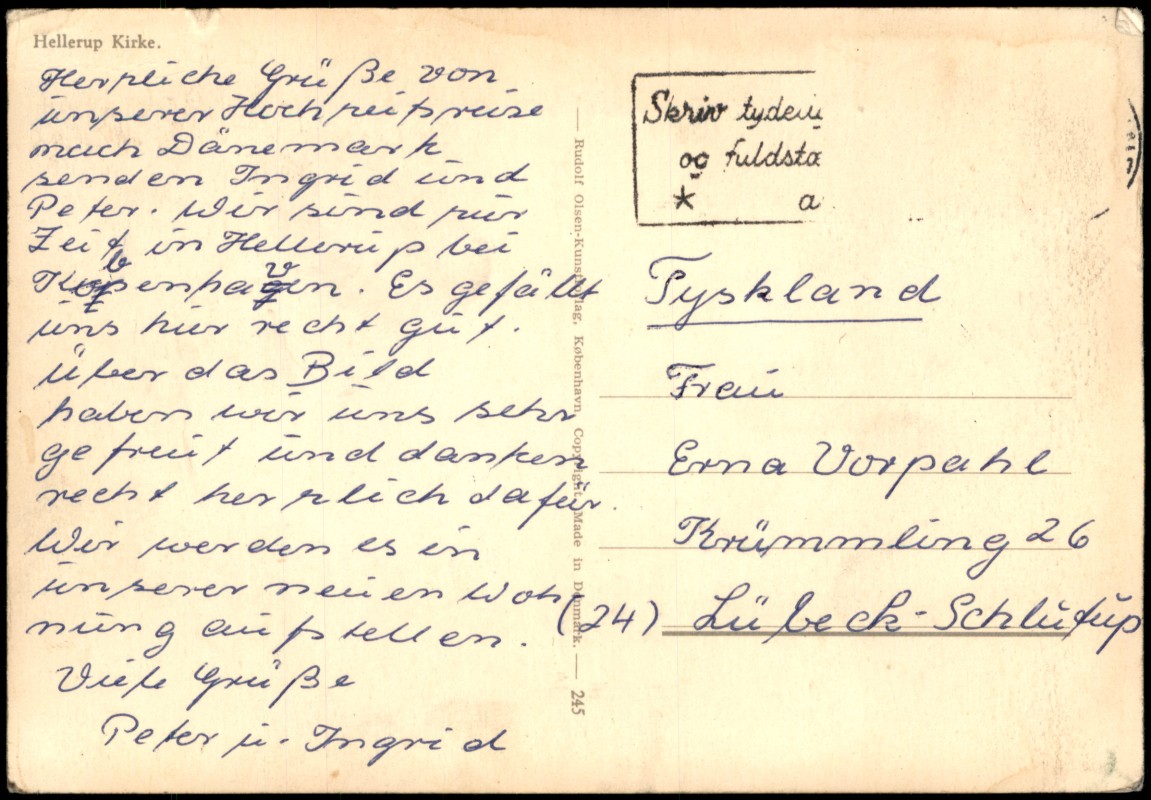 Hellerup Kirke.
Herzliche Grüße von
unserer Hochzeitsreise
nach Dänemark
senden Ingrid und
Peter. Wir sind zur
Zeit in Hellerup bei
Kobenhavn. Es gefällt
uns hier recht gut.
Über das Bild
haben wir uns sehr
gefreut und danken
recht herzlich dafür.
Wir werden es in
unserer neuen Woh
nung aufstellen.
Viele Grüße
Peter u. Ingrid
— Rudolf Olsen-Kunstverlag, København, Copyright. Made in Denmark. — 245
Skriv tydeli
og fuldstæ
* a
Tyskland
Frau
Erna Vorpahl
Krümmling 26
(24) Lübeck-Schlutup